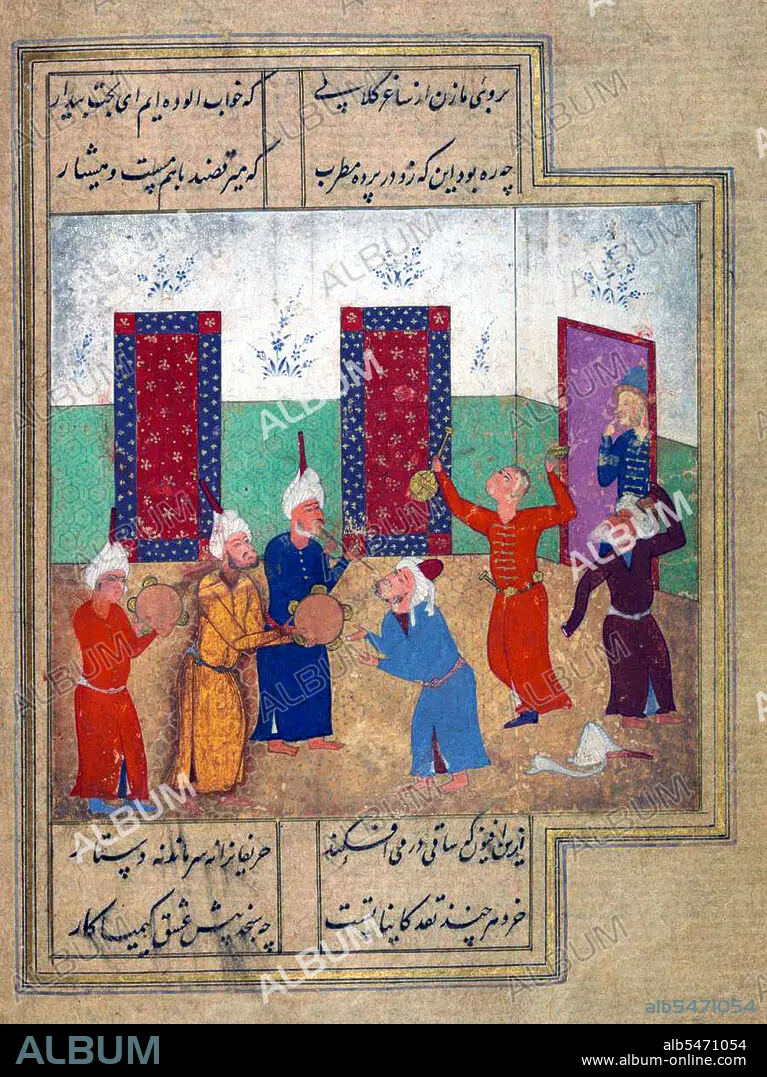 بروی ما زن از ساغر گلابی که خواب الوده ایم ای بخت بیدار
چه ره بود این که زد در پرده مطرب که میرقصند باهم مست و هشیار
ازین افیون که ساقی در می افکند حریفانرا نه سر ماند نه دستار
خرد هر چند نقد کایناتست چه سنجد پیش عشق کیمیا کار
alb5471054
ALBUM
alb5471054
www.album-online.com